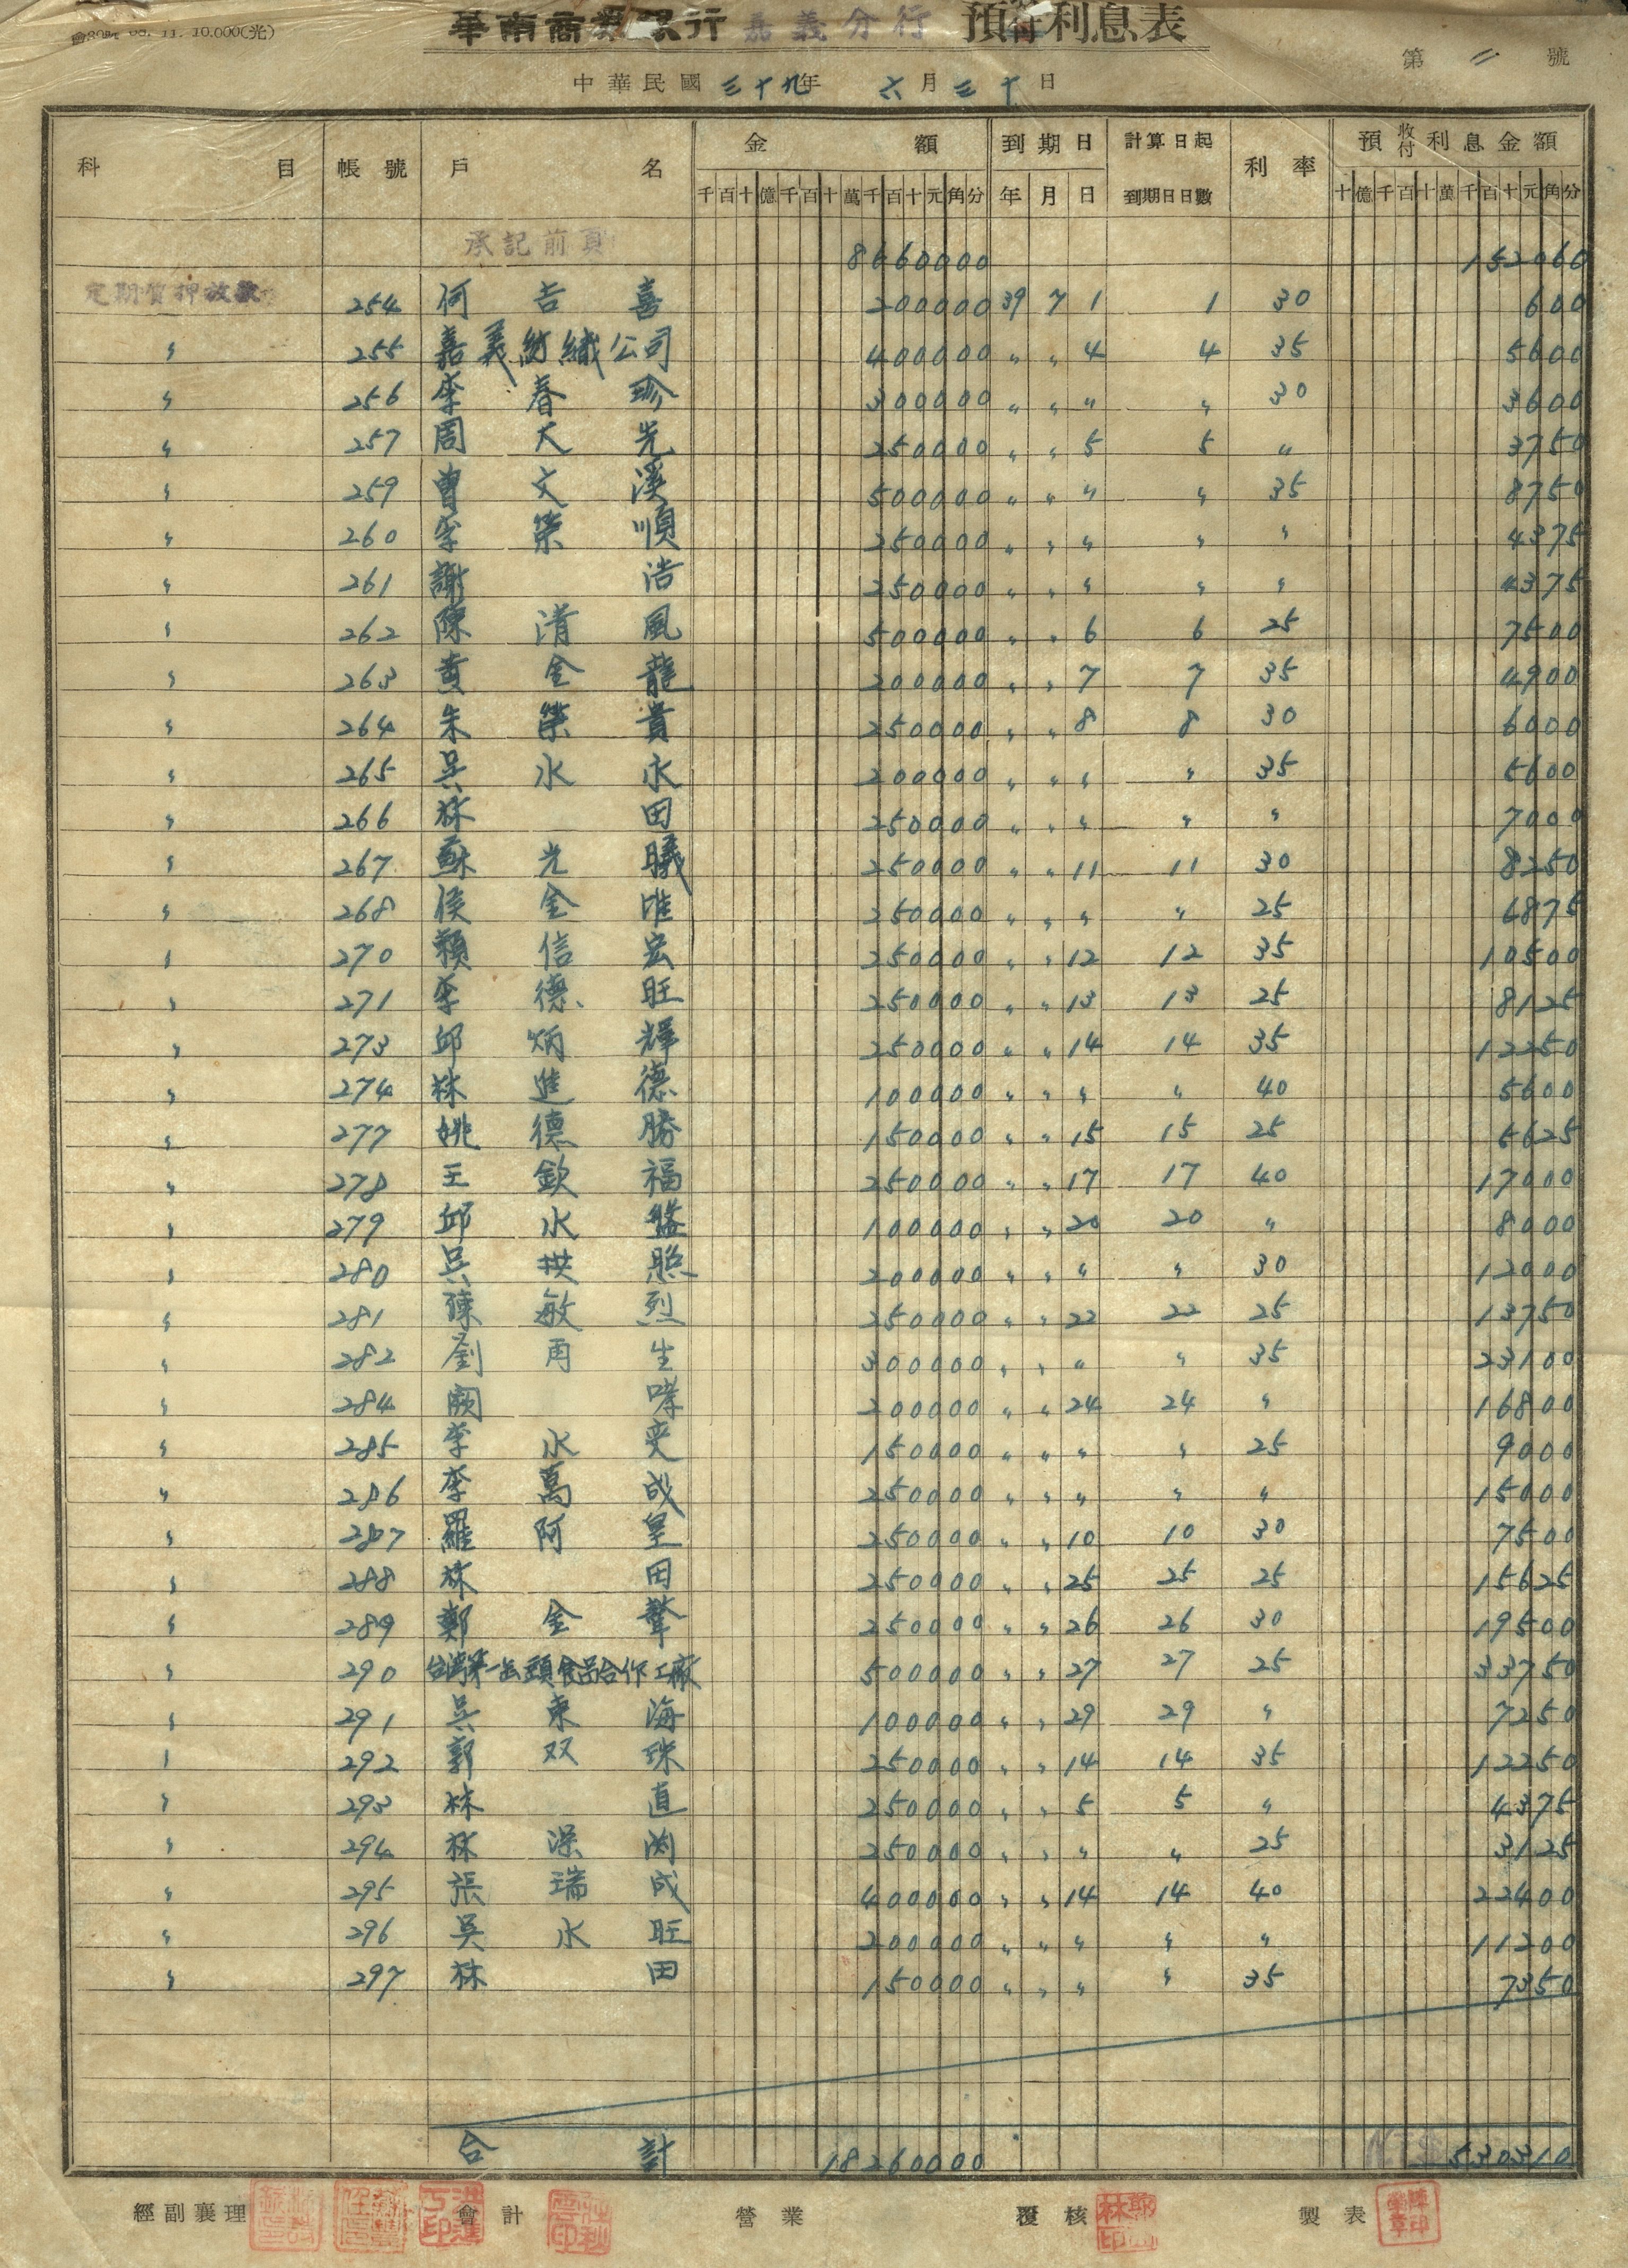 華南商業銀行 嘉義分行 預付利息表
第 二 號
中華民國 三十九年 六月 三十日
科目 帳號 戶名 金額 到期日 計算日起 利率 預收付利息金額
千百十億千百十萬千百十元角分 年 月 日 到期日日數 十億千百十萬千百十元角分
承記前頁 8660000 152060
定期質押放款 254 何吉喜 200000 39 7 1 1 30 600
〃 255 嘉義紡織公司 400000 〃 〃 4 4 35 5600
〃 256 李春珍 300000 〃 〃 〃 〃 30 3600
〃 257 周天光 250000 〃 〃 5 5 〃 3750
〃 259 曹文溪 500000 〃 〃 〃 〃 35 8750
〃 260 李榮順 250000 〃 〃 〃 〃 〃 4375
〃 261 謝浩 250000 〃 〃 〃 〃 〃 4375
〃 262 陳清風 500000 〃 〃 6 6 25 7500
〃 263 黃金龍 200000 〃 〃 7 7 35 4900
〃 264 朱榮貴 250000 〃 〃 8 8 30 6000
〃 265 吳水永 200000 〃 〃 〃 〃 35 5600
〃 266 林田 250000 〃 〃 〃 〃 〃 7000
〃 267 蘇光曦 250000 〃 〃 11 11 30 8250
〃 268 侯金 250000 〃 〃 〃 〃 25 6875
〃 270 賴信宏 250000 〃 〃 12 12 35 10500
〃 271 李德旺 250000 〃 〃 13 13 25 8125
〃 273 邱炳輝 250000 〃 〃 14 14 35 12250
〃 274 林進德 100000 〃 〃 〃 〃 40 5600
〃 277 姚德勝 150000 〃 〃 15 15 25 5625
〃 278 王欽福 250000 〃 〃 17 17 40 17000
〃 279 邱水盤 100000 〃 〃 20 20 〃 8000
〃 280 吳拱照 200000 〃 〃 〃 〃 30 12000
〃 281 陳敏烈 250000 〃 〃 22 22 25 13750
〃 282 劉再生 300000 〃 〃 〃 〃 35 23100
〃 284 闕 200000 〃 〃 24 24 〃 16800
〃 285 李水 150000 〃 〃 〃 〃 25 9000
〃 286 李萬成 250000 〃 〃 〃 〃 〃 15000
〃 287 羅阿呈 250000 〃 〃 10 10 30 7500
〃 288 林田 250000 〃 〃 25 25 25 15625
〃 289 鄭金聲 250000 〃 〃 26 26 30 19500
〃 290 台灣第一缶頭食品合作工廠 500000 〃 〃 27 27 25 33750
〃 291 吳東海 100000 〃 〃 29 29 〃 7250
〃 292 郭双珠 250000 〃 〃 14 14 35 12250
〃 293 林直 250000 〃 〃 5 5 〃 4375
〃 294 林深渕 250000 〃 〃 〃 〃 25 3125
〃 295 張瑞成 400000 〃 〃 14 14 40 22400
〃 296 吳水旺 200000 〃 〃 〃 〃 〃 11200
〃 297 林田 150000 〃 〃 〃 〃 35 7350
合計 18260000 530310
經副襄理 會計 營業 覆核 製表